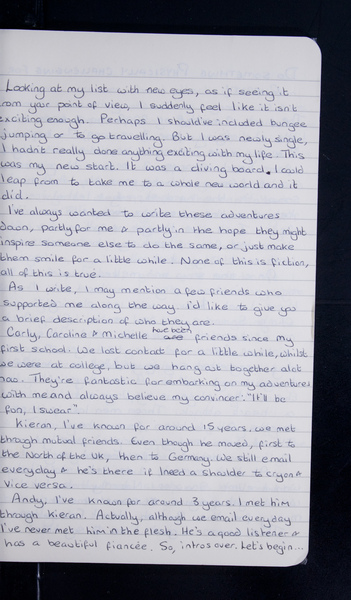 Looking at my list with new eyes, as if seeing it
from your point of view, I suddenly feel like it isn't
exciting enough. Perhaps I should've included bungee
jumping or to go travelling. But I was newly single,
I hadn't really done anything exciting with my life. This
was my new start. It was a diving board I could
leap from to take me to a whole new world and it
did.
I've always wanted to write these adventures
down, partly for me & partly in the hope they might
inspire someone else to do the same, or just make
them smile for a little while. None of this is fiction,
all of this is true.
As I write, I may mention a few friends who
supported me along the way I'd like to give you
a brief description of who they are.
Carly, Caroline & Michelle have been friends since my
first school. We lost contact for a little while, whilst
we were at college, but we hang out together alot
now. They're fantastic for embarking on my adventures
with me and always believe my convincer: "It'll be
fun, I swear".
Kieran, I've known for around 15 years. we met
through mutual friends. Even though he moved, first to
the North of the UK, then to Germany. We still email
everyday & he's there if I need a shoulder to cry on &
vice versa.
Andy, I've known for around 3 years. I met him
through Kieran. Actually, although we email everyday
I've never met him in the flesh. He's a good listener &
has a beautiful fiancée. So, intros over. Let's begin...